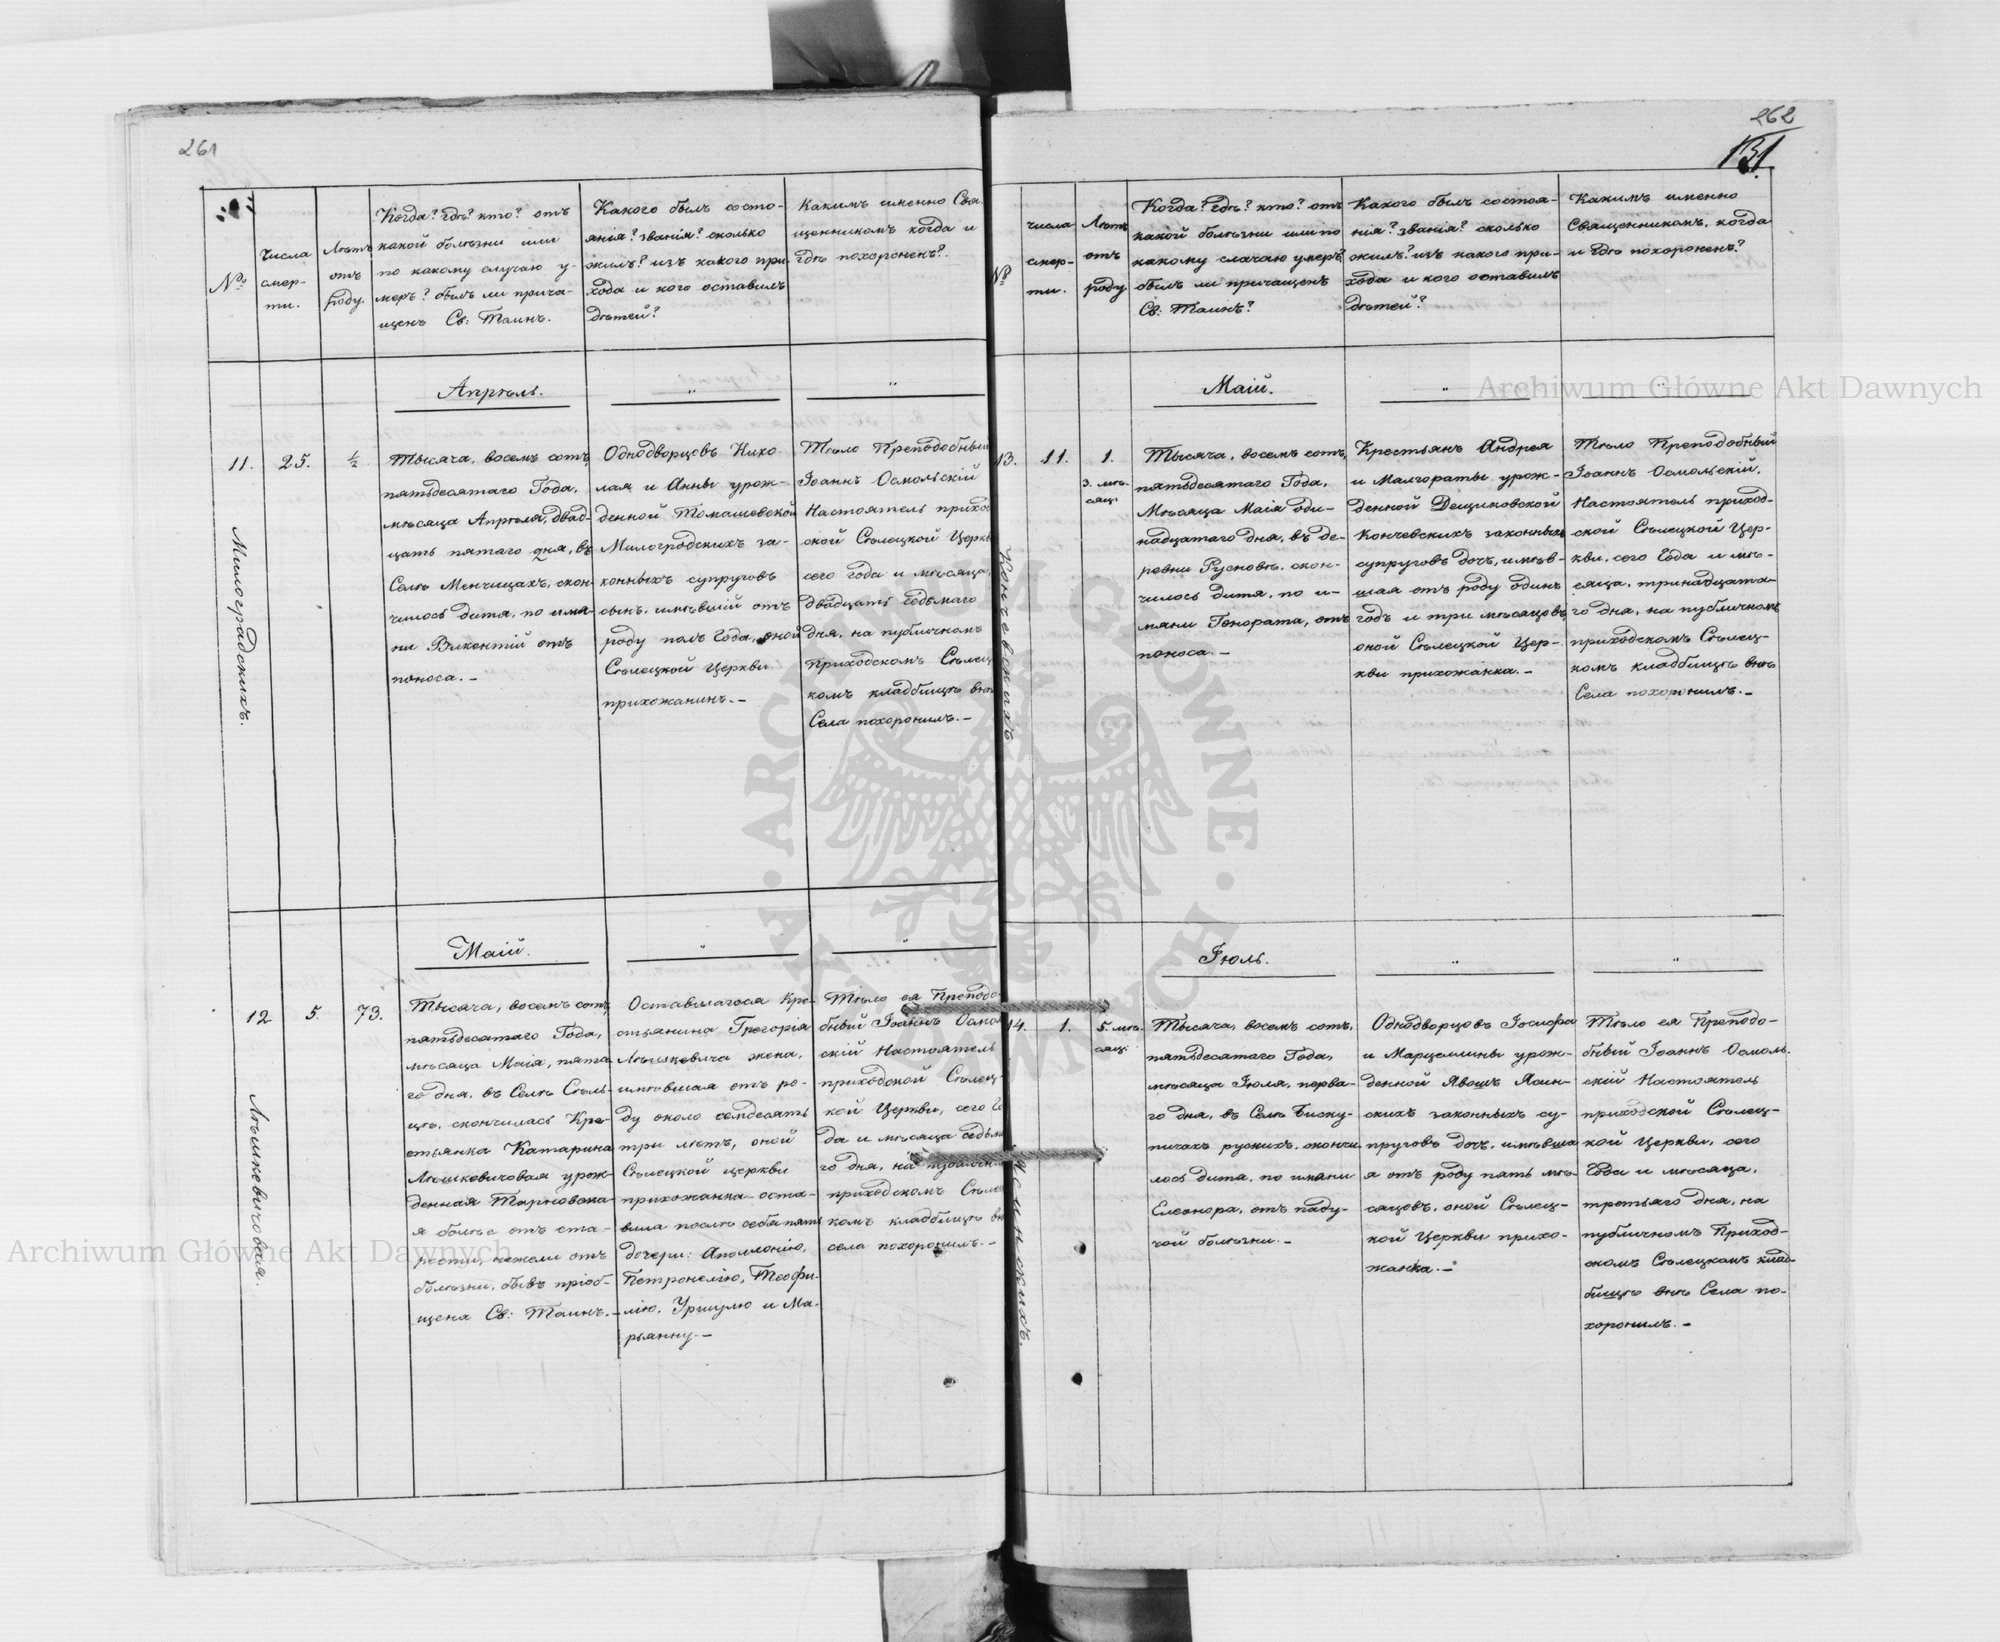 261
№
Числа
смер-
ти.
Лѣтъ
отъ
роду.
Когда? гдѣ? кто? отъ
какой болѣзни или
по какому случаю у-
меръ? былъ ли прича-
щенъ Св: Таинъ.
Какого былъ состо-
янія? званія? сколько
жилъ? изъ какого при
хода и кого оставилъ
дѣтей?
Какимъ именно Свя-
щенникомъ когда и
гдѣ похороненъ?
Апрѣль.
11.
25.
½
Милоградскихъ.
Тысяча, восемъ сотъ,
пятьдесятаго Года,
мѣсяца Апрѣля, двад-
цать пятаго дня, въ
Селѣ Менчицахъ, скон-
чилось дитя, по име-
ни Викентій отъ
поноса.-
Однодворцовъ Нико
лая и Анны урож-
денной Томашевской
Милогродскихъ за-
конныхъ супруговъ
сынъ, имѣвшій отъ
роду полъ Года, оной
Стѣлецкой Церкви
прихожанинъ.-
Тѣло Преподобный
Іоаннъ Осмольскій
Настоятель приход
ской Стѣлецкой Церкв
сего года и мѣсяца,
двадцать седьмаго
дня, на публичномъ
приходскомъ Стѣлец
комъ кладбищѣ внѣ
Села похоронилъ.-
Маій.
12
5.
73.
Лѣшкевичовая.
Тысяча, восемъ сотъ,
пятьдесятаго Года,
мѣсяца Маія, пята
го дня, въ Селѣ Стѣль-
цѣ, скончилась Кре-
стьянка Катарина
Лѣшковичовая урож-
денная Тарновска-
я болѣе отъ ста-
рости, нежели отъ
болѣзни, бывъ пріоб-
щена Св: Таинъ.-
Оставшагося Кре-
стьянина Грегорія
Лѣшкевича жена,
имѣвшая отъ ро-
ду около семдесять
три лѣтъ, оной
Стѣлецкой церкви
прихожанка оста-
вила послѣ себя пять
дочери: Аполлонію,
Петронелію, Теофи-
лію, Уршулю и Ма-
рьянну.-
Тѣло ея Преподо-
бный Іоаннъ Осмол
скій Настоятель
приходской Стѣлец-
кой Церкви, сего Го
да и мѣсяца седьма
го дня, на публичн
приходскомъ Стѣле
комъ кладбищѣ вн
села похоронилъ.-
262
131
№
Числа
смер-
ти.
Лѣтъ
отъ
роду.
Когда? гдѣ? кто? отъ
какой болѣзни или по
какому случаю умеръ?
былъ ли причащенъ
Св: Таинъ?
Какого былъ состоя-
нія? званія? сколько
жилъ? изъ какого при-
хода и кого оставилъ
дѣтей?
Какимъ именно
Священникомъ, когда
и гдѣ похороненъ?
Маій.
13.
11.
1.
3. мѣ-
сяц:
Кончевскихъ
Тысяча, восемъ сотъ,
пятьдесятаго Года,
Мѣсяца Маія оди-
надцатаго дня, въ де-
ревни Русновъ, скон-
чилось дитя, по и-
мяни Гонората, отъ
поноса.-
Крестьянъ Андрея
и Малгораты урож-
денной Дещиковской
Кончевскихъ законныхъ
супруговъ дочь, имѣв-
шая отъ роду одинъ
годъ и три мѣсяцовъ,
оной Стѣлецкой Цер-
кви прихожанка.-
Тѣло Преподобный
Іоаннъ Осмольскій,
Настоятель приход-
ской Стѣлецкой Цер-
кви, сего Года и мѣ-
сяца, тринадцата-
го дня, на публичномъ
приходскомъ Стѣлец-
комъ кладбищѣ внѣ
Села похоронилъ.-
Іюль.
14.
1.
5. мѣ-
сяц:
Тысяча, восемъ сотъ,
пятьдесятаго Года,
мѣсяца Іюля, перва-
го дня, въ Селѣ Биску-
пичахъ рускихъ, окончи
лось дитя, по имяни
Елеонора, отъ паду-
чой болѣзни.-
Однодворцовъ Іосифа
и Марцеллины урож-
денной Явошъ Ясин-
скихъ законныхъ су-
пруговъ дочь, имѣвша
я отъ роду пять мѣ-
сяцовъ, оной Стѣлец-
кой Церкви прихо-
жанка.-
Тѣло ея Преподо-
бный Іоаннъ Осмоль-
скій Настоятель
приходской Стѣлец-
кой Церкви, сего
Года и мѣсяца,
третьяго дня, на
публичномъ Приход-
скомъ Стѣлецкомъ клад-
бищѣ внѣ Села по-
хоронилъ.-
Archiwum Główne Akt Dawnych
Archiwum Główne Akt Dawnych